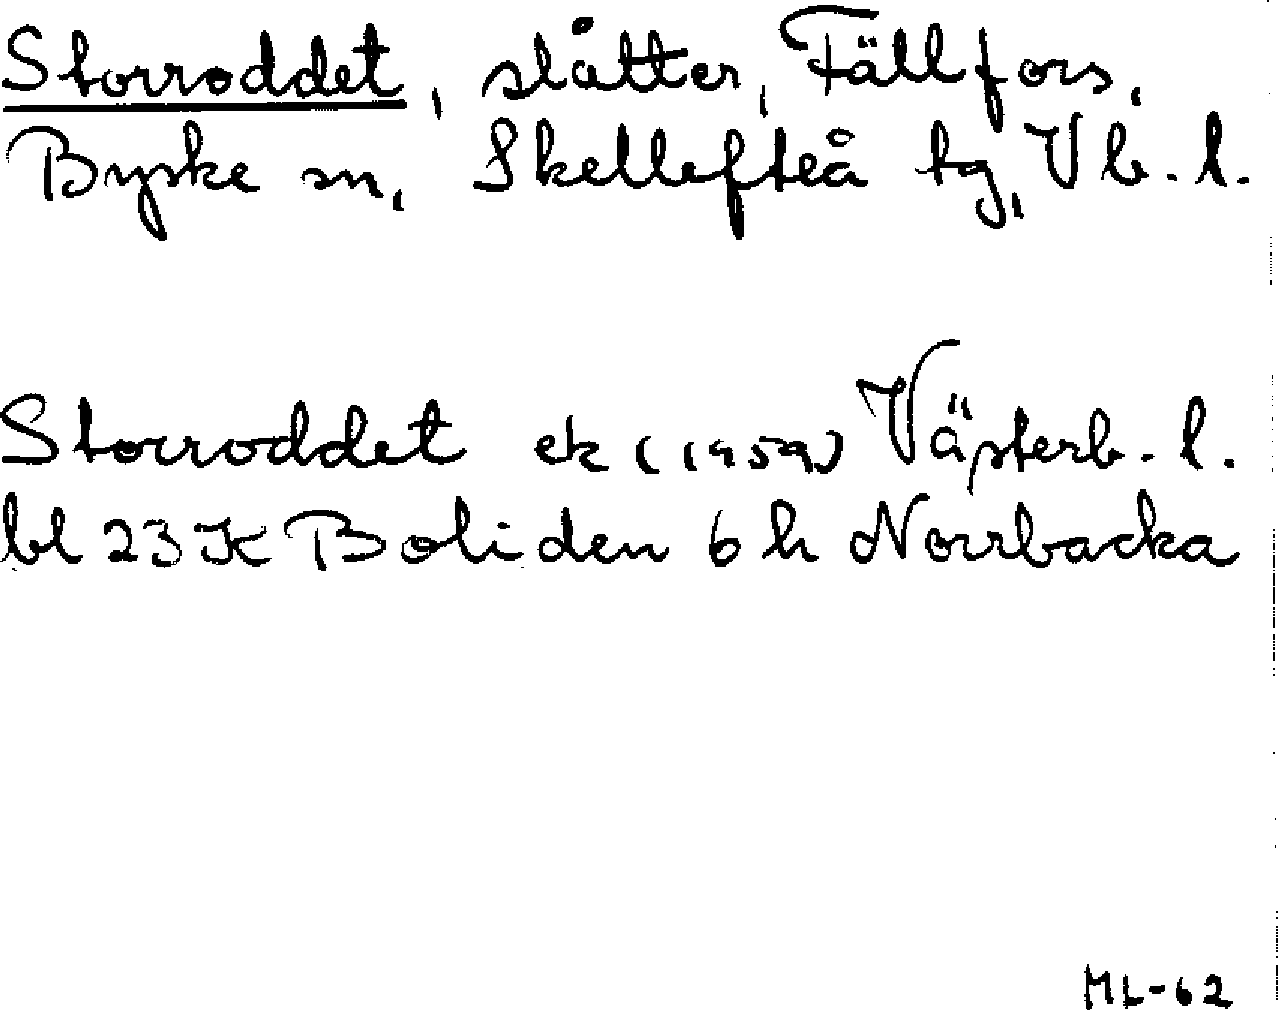 Storroddet, slåtter, Fällfors,
Byske sn, Skellefteå tg, Vb. l.
Storroddet ek (1959) Västerb. l.
bl 23 K Boliden 6 h Norrbacka
ML-62